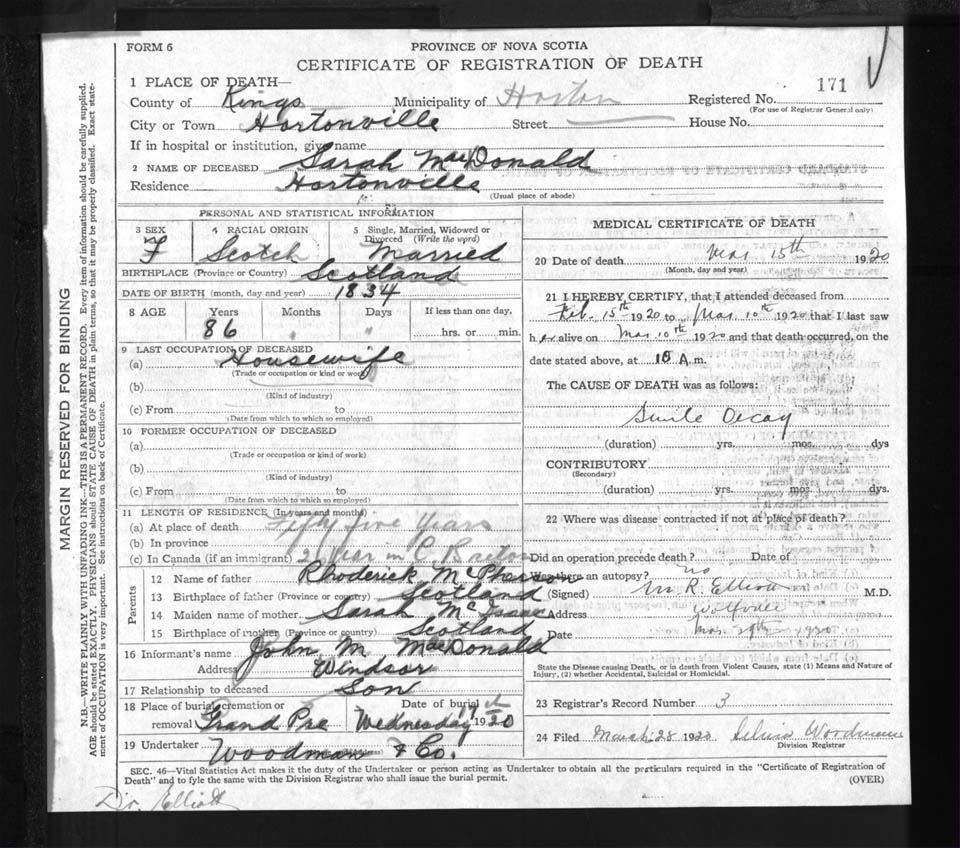 FORM 6
PROVINCE OF NOVA SCOTIA
CERTIFICATE OF REGISTRATION OF DEATH
1 PLACE OF DEATH—
171
County of Kings Municipality of Horton Registered No.
(For use of Registrar General only)
City or Town Hortonville Street House No.
If in hospital or institution, give name
2 NAME OF DECEASED Sarah MacDonald
Residence Hortonville
(Usual place of abode)
PERSONAL AND STATISTICAL INFORMATION
3 SEX 4 RACIAL ORIGIN 5 Single, Married, Widowed or Divorced (Write the word)
F Scotch Married
BIRTHPLACE (Province or Country) Scotland
DATE OF BIRTH (month, day and year) 1834
8 AGE Years Months Days If less than one day,
86 " " hrs. or min.
9 LAST OCCUPATION OF DECEASED
(a) Housewife
(Trade or occupation or kind or work)
(b)
(Kind of industry)
(c) From to
(Date from which to which so employed)
10 FORMER OCCUPATION OF DECEASED
(a)
(Trade or occupation or kind of work)
(b)
(Kind of industry)
(c) From to
(Date from which to which so employed)
11 LENGTH OF RESIDENCE (In years and months)
(a) At place of death Fifty five years
(b) In province
(c) In Canada (if an immigrant) 2 year in C. Breton
Parents
12 Name of father Rhoderick McPherson
13 Birthplace of father (Province or country) Scotland
14 Maiden name of mother Sarah McIsaac
15 Birthplace of mother (Province or country) Scotland
16 Informant's name John M MacDonald
Address Windsor
17 Relationship to deceased Son
18 Place of burial, cremation or removal Grand Pre
Date of burial Wednesday 17th 1920
19 Undertaker Woodman & Co.
MEDICAL CERTIFICATE OF DEATH
20 Date of death Mar. 15th 1920
(Month, day and year)
21 I HEREBY CERTIFY, that I attended deceased from
Feb. 15th 1920 to Mar. 10th 1920 that I last saw
her alive on Mar. 10th 1920 and that death occurred, on the
date stated above, at 10 A.m.
The CAUSE OF DEATH was as follows:
Senile Decay
(duration) yrs. mos. dys
CONTRIBUTORY
(Secondary)
(duration) yrs. mos. dys.
22 Where was disease contracted if not at place of death?
Did an operation precede death? Date of
Was there an autopsy? no
(Signed) M. R. Elliott M.D.
Address Wolfville
Date Mar. 1920
State the Disease causing Death, or in death from Violent Causes, state (1) Means and Nature of
Injury, (2) whether Accidental, Suicidal or Homicidal.
23 Registrar's Record Number 3
24 Filed March 28 1920 Woodman
Division Registrar
SEC. 46—Vital Statistics Act makes it the duty of the Undertaker or person acting as Undertaker to obtain all the particulars required in the "Certificate of Registration of
Death" and to fyle the same with the Division Registrar who shall issue the burial permit.
(OVER)
Dr. Elliott
MARGIN RESERVED FOR BINDING
N.B.—WRITE PLAINLY WITH UNFADING INK—THIS IS A PERMANENT RECORD. Every item of information should be carefully supplied.
AGE should be stated EXACTLY. PHYSICIANS should STATE CAUSE OF DEATH in plain terms, so that it may be properly classified. Exact state-
ment of OCCUPATION is very important. See instructions on back of Certificate.